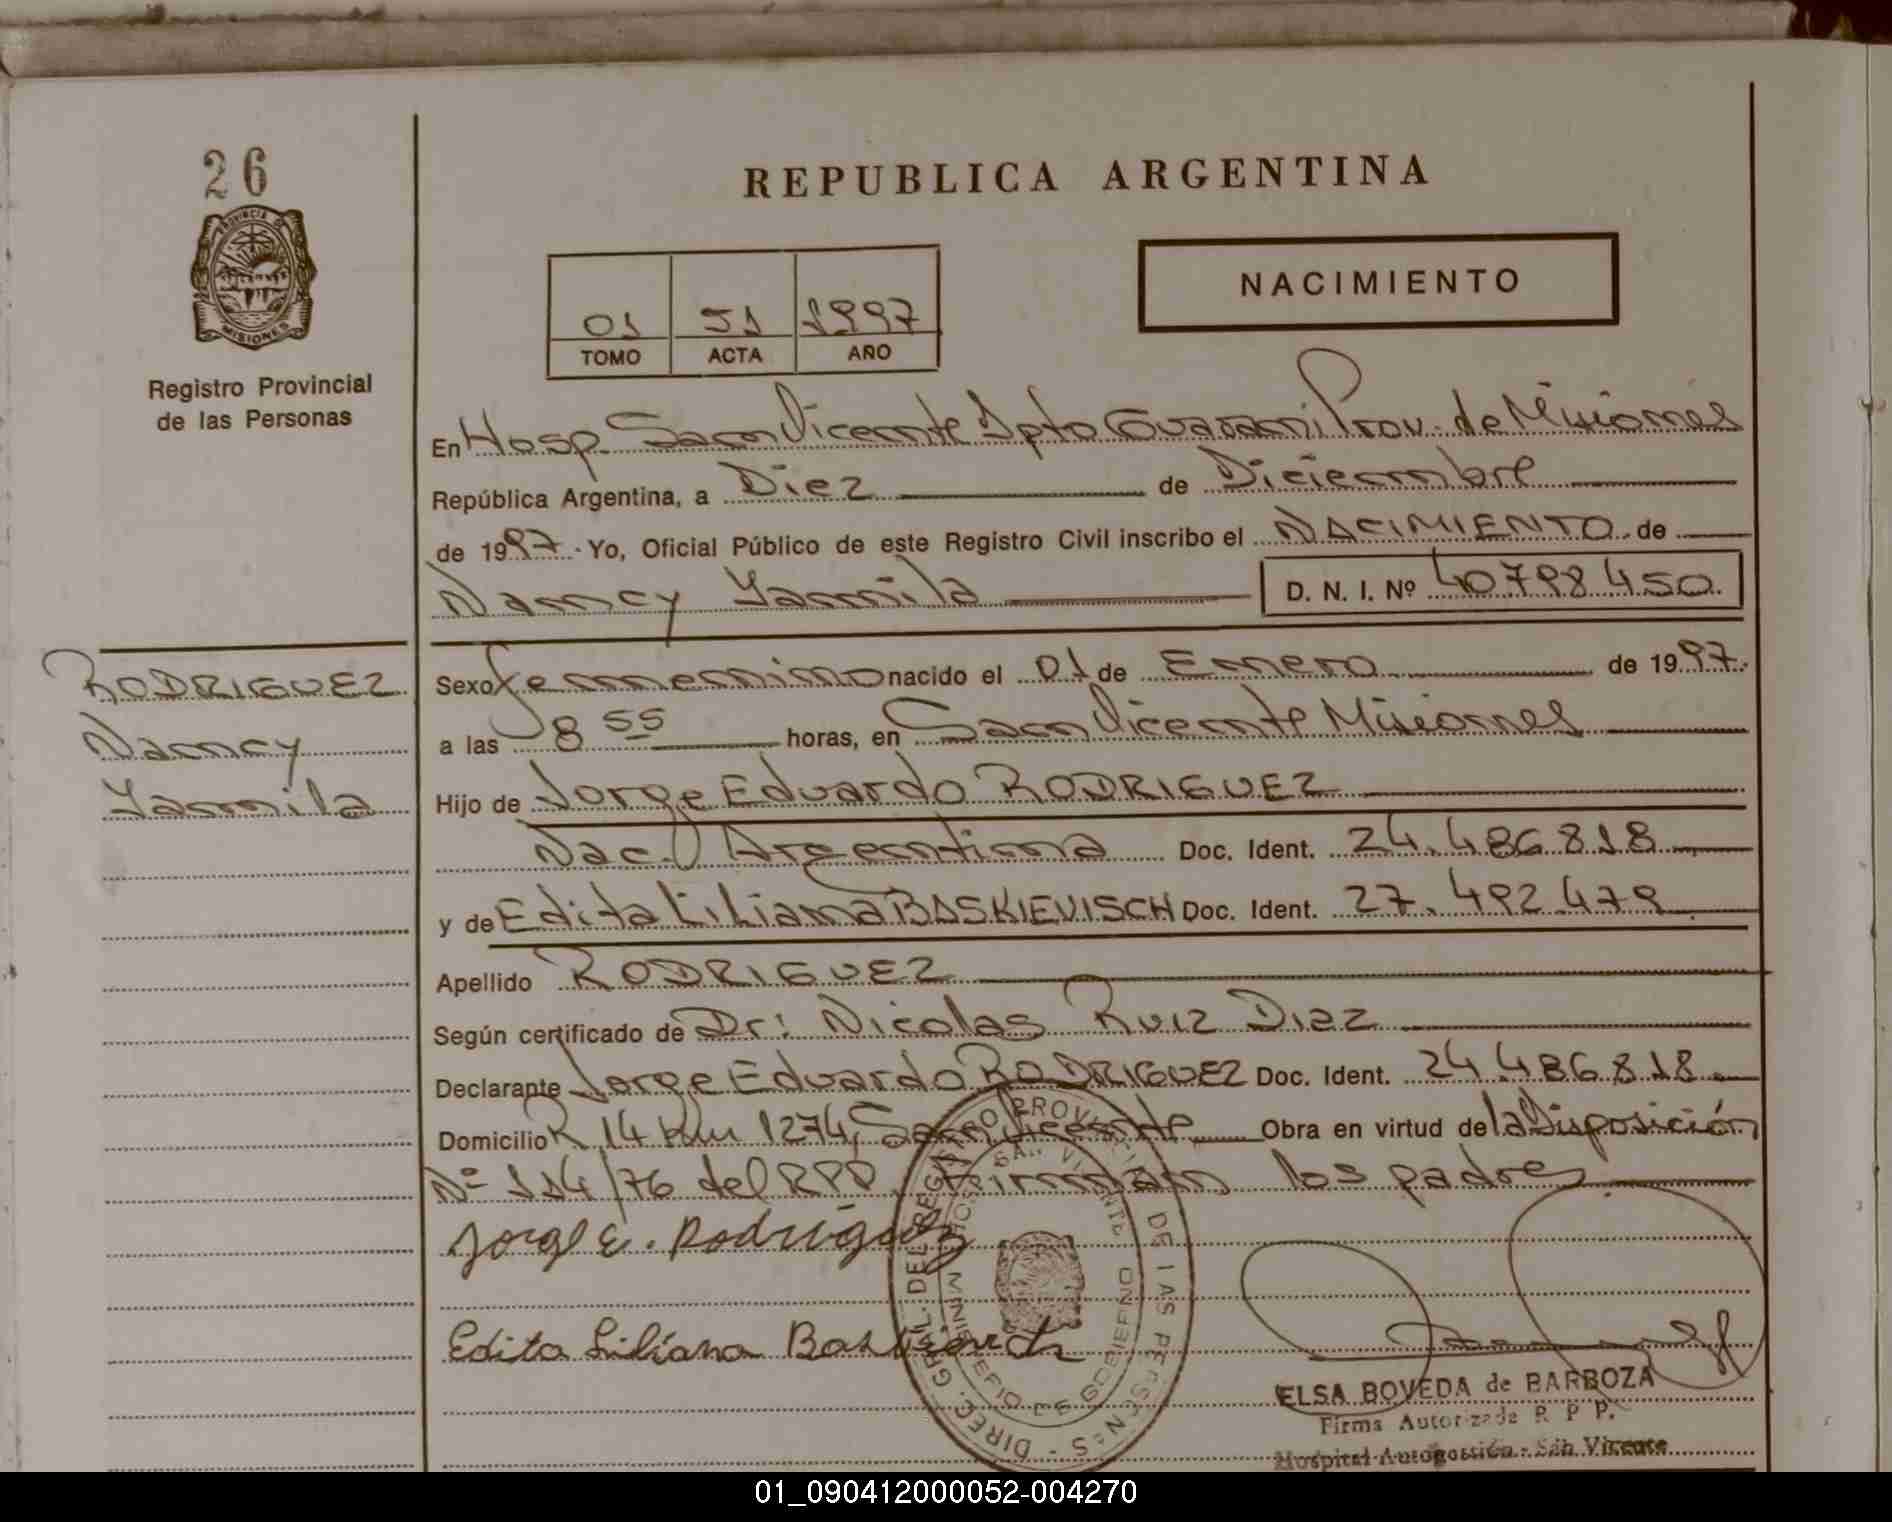 26
PROVINCIA DE
MISIONES
Registro Provincial
de las Personas
REPUBLICA ARGENTINA
NACIMIENTO
01 51 1997
TOMO ACTA AÑO
En Hosp. San Vicente Dpto Guarani Prov. de Misiones
República Argentina, a Diez de Diciembre
de 1997. Yo, Oficial Público de este Registro Civil inscribo el NACIMIENTO de
Nancy Yamila D. N. I. Nº 40798450.
RODRIGUEZ
Nancy
Yamila
Sexo femenino nacido el 01 de Enero de 1997.
a las 8 55 horas, en San Vicente Misiones
Hijo de Jorge Eduardo RODRIGUEZ
Nac. Argentina Doc. Ident. 24.486.818
y de Edita Liliana BASKIEVISCH Doc. Ident. 27.492.479
Apellido RODRIGUEZ
Según certificado de Dr: Nicolas Ruiz Diaz
Declarante Jorge Eduardo RODRIGUEZ Doc. Ident. 24.486.818.
Domicilio R 14 Km 1274, San Vicente Obra en virtud de la Disposición
Nº 114/76 del RPP. Firman los padres
Jorge E. Rodriguez
Edita Liliana
DIREC. GRAL. DEL REGISTRO PROVINCIAL DE LAS PERSONAS
HOSP. SAN VICENTE
MINISTERIO DE GOBIERNO
ELSA BOVEDA de BARBOZA
Firma Autorizada R P P.
Hospital Autogestión - San Vicente
01_090412000052-004270